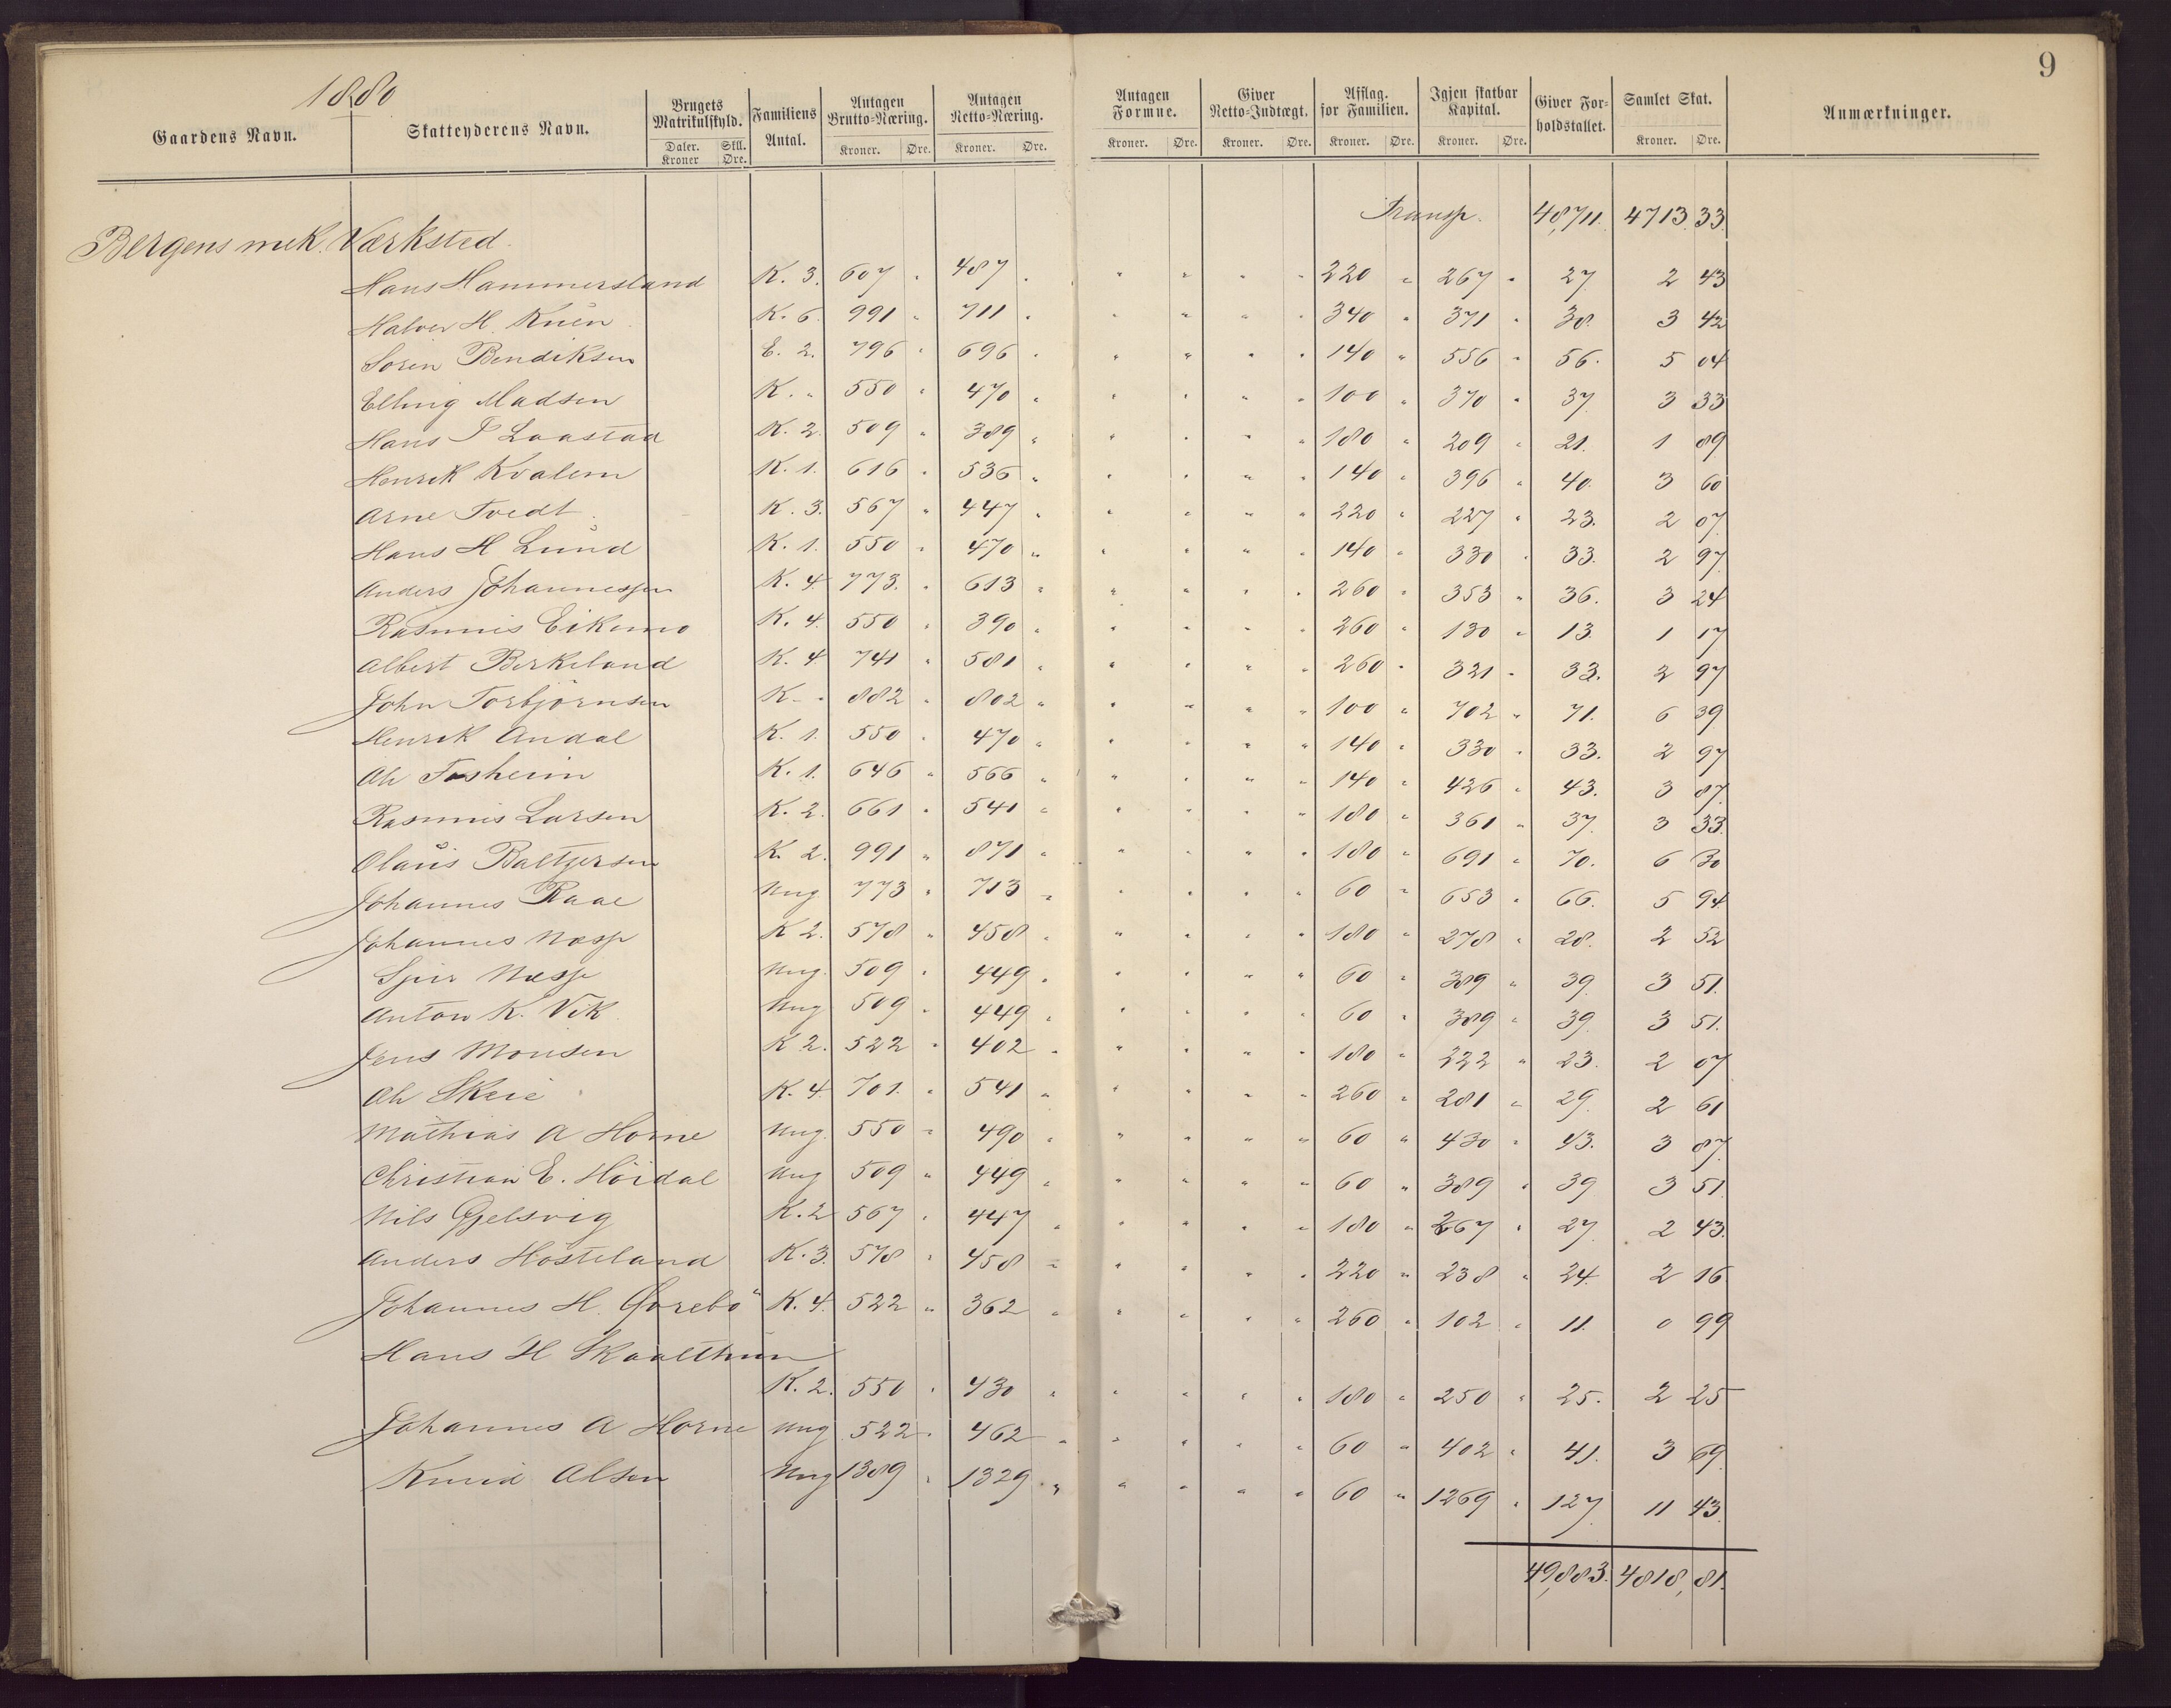 9
1880
Gaardens Navn. Skatteyderens Navn. Brugets Matrikulskyld. Familiens Antal. Antagen Brutto-Næring. Antagen Netto-Næring. Antagen Formue. Giver Netto-Indtægt. Afslag for Familien. Igjen skatbar Kapital. Giver Forholdstallet. Samlet Skat. Anmærkninger.
Daler. Kroner Skll. Øre. Kroner. Øre. Kroner. Øre. Kroner. Øre. Kroner. Øre. Kroner. Øre. Kroner. Øre. Kroner. Øre.
Transp. 48,711. 4713. 33.
Bergens mek. Værksted.
Hans Hammersland K. 3. 607 " 487 " " " " " 220 " 267 " 27 2 43
Halvor H. Knén K. 6. 991 " 711 " " " " " 340 " 371 " 38. 3 42
Soren Bendiksen E. 2. 796 " 696 " " " " " 140 " 556 " 56. 5 04
Elling Madsen K. " 550 " 470 " " " " " 100 " 370 " 37 3 33
Hans P Laastad K. 2. 509 " 389 " " " " " 180 " 209 " 21. 1 89
Henrik Kvalem K. 1. 616 " 536 " " " " " 140 " 396 " 40. 3 60
Arne Tvedt K. 3. 567 " 447 " " " " " 220 " 227 " 23. 2 07
Hans H Lund K. 1. 550 " 470 " " " " " 140 " 330 " 33. 2 97
Anders Johannessen K. 4. 773. " 613 " " " " " 260 " 353 " 36. 3 24
Rasmus Eikemo K. 4. 550 " 390 " " " " " 260 " 130 " 13. 1 17
Albert Birkeland K. 4 741 " 581 " " " " " 260 " 321 " 33. 2 97
John Torbjörnsen K. " 882 " 802 " " " " " 100 " 702 " 71. 6 39
Henrik Andal K. 1. 550 " 470 " " " " " 140 " 330 " 33. 2 97
Ole Tosheim K. 1. 646 " 566 " " " " " 140 " 426 " 43. 3 87
Rasmus Larsen K. 2. 661 " 541 " " " " " 180 " 361 " 37. 3 33.
Olaus Baltzersen K. 2. 991 " 871 " " " " " 180 " 691 " 70. 6 30
Johannes Raae Ung 773 " 713 " " " " " 60 " 653 " 66. 5 94
Johannes Næsse K 2. 578 " 458 " " " " " 180 " 278 " 28. 2 52
Sjur Næsse Ung. 509 " 449 " " " " " 60 " 389 " 39. 3 51.
Anton K. Vik Ung 509 " 449 " " " " " 60 " 389 " 39. 3 51.
Jens Monsen K 2. 522 " 402 " " " " " 180 " 222 " 23. 2 07
Ole Skeie K. 4. 701. " 541 " " " " " 260 " 281 " 29. 2 61
Mathias A Horne Ung. 550 " 490 " " " " " 60 " 430 " 43. 3 87.
Christian E. Höidal Ung 509 " 449 " " " " " 60 " 389 " 39 3 51.
Nils Gjelsvig K. 2 567 " 447 " " " " " 180 " 267 " 27. 2 43.
Anders Hosteland K. 3. 578 " 458 " " " " " 220 " 238 " 24. 2 16
Johannes H. Gjorebö K. 4. 522 " 362 " " " " " 260 " 102 " 11. 0 99
Hans H Skaalthun
K. 2. 550 " 430 " " " " " 180 " 250 " 25. 2 25
Johannes A Horne Ung 522 " 462 " " " " " 60 " 402 " 41. 3 69
Knud Olsen Ung 1389 " 1329 " " " " " 60 " 1269 " 127. 11 43.
49,883. 4818, 81.